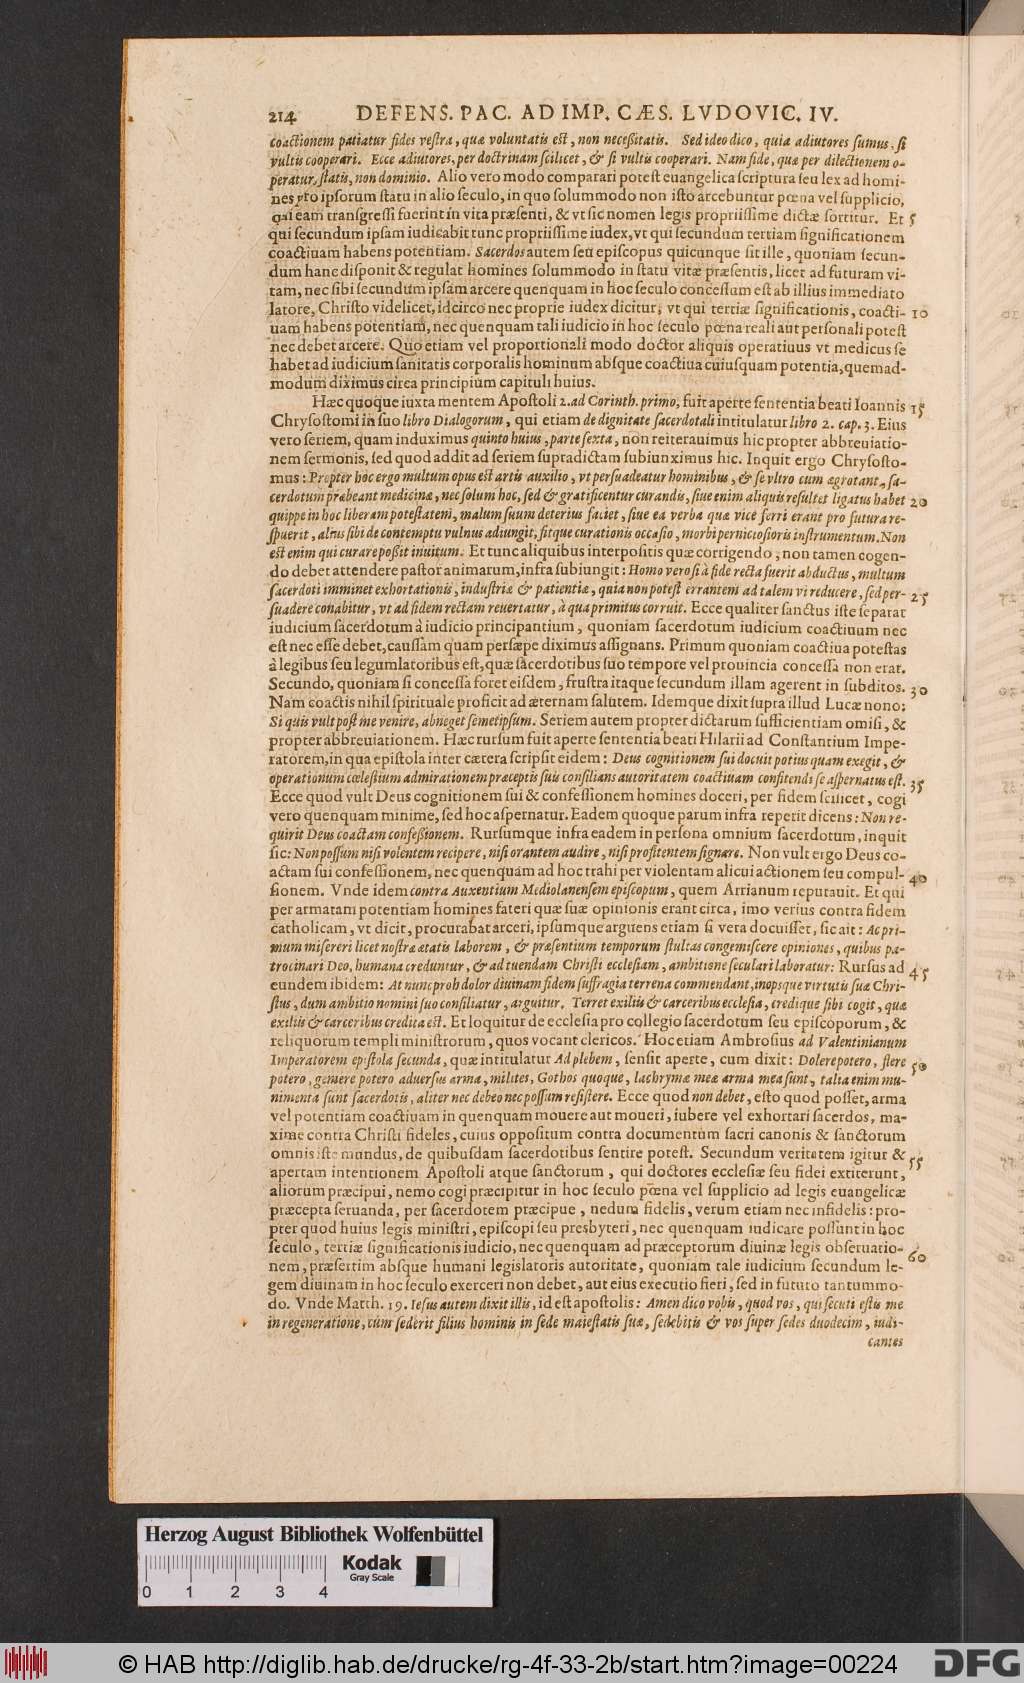 214 DEFENS. PAC. AD IMP. CÆS. LVDOVIC. IV.
coactionem patiatur fides vestra, quæ voluntatis est, non neceßitatis. Sed ideo dico, quia adiutores sumus, si
vultis cooperari. Ecce adiutores, per doctrinam scilicet, & si vultis cooperari. Nam fide, quæ per dilectionem o-
peratur, statis, non dominio. Alio vero modo comparari potest euangelica scriptura seu lex ad homi-
nes pro ipsorum statu in alio seculo, in quo solummodo non isto arcebuntur pœna vel supplicio,
qui eam transgressi fuerint in vita præsenti, & vt sic nomen legis propriissime dictæ sortitur. Et 5
qui secundum ipsam iudicabit tunc propriissime iudex, vt qui secundum tertiam significationem
coactiuam habens potentiam. Sacerdos autem seu episcopus quicunque sit ille, quoniam secun-
dum hanc disponit & regulat homines solummodo in statu vitæ præsentis, licet ad futuram vi-
tam, nec sibi secundum ipsam arcere quenquam in hoc seculo concessum est ab illius immediato
latore, Christo videlicet, idcirco nec proprie iudex dicitur, vt qui tertiæ significationis, coacti- 10
uam habens potentiam, nec quenquam tali iudicio in hoc seculo pœna reali aut personali potest
nec debet arcere. Quo etiam vel proportionali modo doctor aliquis operatiuus vt medicus se
habet ad iudicium sanitatis corporalis hominum absque coactiua cuiusquam potentia, quemad-
modum diximus circa principium capituli huius.
Hæc quoque iuxta mentem Apostoli 2. ad Corinth. primo, fuit aperte sententia beati Ioannis 15
Chrysostomi in suo libro Dialogorum, qui etiam de dignitate sacerdotali intitulatur libro 2. cap. 3. Eius
vero seriem, quam induximus quinto huius, parte sexta, non reiterauimus hic propter abbreuiatio-
nem sermonis, sed quod addit ad seriem supradictam subiunximus hic. Inquit ergo Chrysosto-
mus: Propter hoc ergo multum opus est artis auxilio, vt persuadeatur hominibus, & se vltro cum ægrotant, sa-
cerdotum præbeant medicinæ, nec solum hoc, sed & gratificentur curandis, siue enim aliquis resultet ligatus habet 20
quippe in hoc liberam potestatem, malum suum deterius faciet, siue ea verba quæ vice ferri erant pro futura re-
spuerit, altus sibi de contemptu vulnus adiungit, fitque curationis occasio, morbi perniciosioris instrumentum. Non
est enim qui curare poßit inuitum. Et tunc aliquibus interpositis quæ corrigendo, non tamen cogen-
do debet attendere pastor animarum, infra subiungit: Homo vero si à fide recta fuerit abductus, multum
sacerdoti imminet exhortationis, industriæ & patientiæ, quia non potest errantem ad talem vi reducere, sed per- 25
suadere conabitur, vt ad fidem rectam reuertatur, à qua primitus corruit. Ecce qualiter sanctus iste separat
iudicium sacerdotum à iudicio principantium, quoniam sacerdotum iudicium coactiuum nec
est nec esse debet, caussam quam persæpe diximus assignans. Primum quoniam coactiua potestas
à legibus seu legumlatoribus est, quæ sacerdotibus suo tempore vel prouincia concessa non erat.
Secundo, quoniam si concessa foret eisdem, frustra itaque secundum illam agerent in subditos. 30
Nam coactis nihil spirituale proficit ad æternam salutem. Idemque dixit supra illud Lucæ nono;
Si quis vult post me venire, abneget semetipsum. Seriem autem propter dictarum sufficientiam omisi, &
propter abbreuiationem. Hæc rursum fuit aperte sententia beati Hilarii ad Constantium Impe-
ratorem, in qua epistola inter cætera scripsit eidem: Deus cognitionem sui docuit potius quam exegit, &
operationum cœlestium admirationem præceptis suis consilians autoritatem coactiuam confitendi se aspernatus est. 35
Ecce quod vult Deus cognitionem sui & confessionem homines doceri, per fidem scilicet, cogi
vero quenquam minime, sed hoc aspernatur. Eadem quoque parum infra repetit dicens: Non re-
quirit Deus coactam confeßionem. Rursumque infra eadem in persona omnium sacerdotum, inquit
sic: Non possum nisi volentem recipere, nisi orantem audire, nisi profitentem signare. Non vult ergo Deus co-
actam sui confessionem, nec quenquam ad hoc trahi per violentam alicui actionem seu compul- 40
sionem. Vnde idem contra Auxentium Mediolanensem episcopum, quem Arrianum reputauit. Et qui
per armatam potentiam homines fateri quæ suæ opinionis erant circa, imo verius contra fidem
catholicam, vt dicit, procurabat arceri, ipsumque arguens etiam si vera docuisset, sic ait: Ac pri-
mum misereri licet nostræ ætatis laborem, & præsentium temporum stultas congemiscere opiniones, quibus pa-
trocinari Deo, humana creduntur, & ad tuendam Christi ecclesiam, ambitione seculari laboratur: Rursus ad 45
eundem ibidem: At nunc proh dolor diuinam fidem suffragia terrena commendant, inopsque virtutis suæ Chri-
stus, dum ambitio nomini suo consiliatur, arguitur. Terret exiliis & carceribus ecclesia, credique sibi cogit, quæ
exiliis & carceribus credita est. Et loquitur de ecclesia pro collegio sacerdotum seu episcoporum, &
reliquorum templi ministrorum, quos vocant clericos. Hoc etiam Ambrosius ad Valentinianum
Imperatorem epistola secunda, quæ intitulatur Ad plebem, sensit aperte, cum dixit: Dolere potero, flere 50
potero, gemere potero aduersus arma, milites, Gothos quoque, lachrymæ meæ arma mea sunt, talia enim mu-
nimenta sunt sacerdotis, aliter nec debeo nec possum resistere. Ecce quod non debet, esto quod posset, arma
vel potentiam coactiuam in quenquam mouere aut moueri, iubere vel exhortari sacerdos, ma-
xime contra Christi fideles, cuius oppositum contra documentum sacri canonis & sanctorum
omnis iste mundus, de quibusdam sacerdotibus sentire potest. Secundum veritatem igitur & 55
apertam intentionem Apostoli atque sanctorum, qui doctores ecclesiæ seu fidei extiterunt,
aliorum præcipui, nemo cogi præcipitur in hoc seculo pœna vel supplicio ad legis euangelicæ
præcepta seruanda, per sacerdotem præcipue, nedum fidelis, verum etiam nec infidelis: pro-
pter quod huius legis ministri, episcopi seu presbyteri, nec quenquam iudicare possunt in hoc
seculo, tertiæ significationis iudicio, nec quenquam ad præceptorum diuinæ legis obseruatio- 60
nem, præsertim absque humani legislatoris autoritate, quoniam tale iudicium secundum le-
gem diuinam in hoc seculo exerceri non debet, aut eius executio fieri, sed in futuro tantummo-
do. Vnde Matth. 19. Iesus autem dixit illis, id est apostolis: Amen dico vobis, quod vos, qui secuti estis me
in regeneratione, cùm sederit filius hominis in sede maiestatis suæ, sedebitis & vos super sedes duodecim, iudi-
cantes
Herzog August Bibliothek Wolfenbüttel
Kodak
Gray Scale
0 1 2 3 4
© HAB http://diglib.hab.de/drucke/rg-4f-33-2b/start.htm?image=00224
DFG